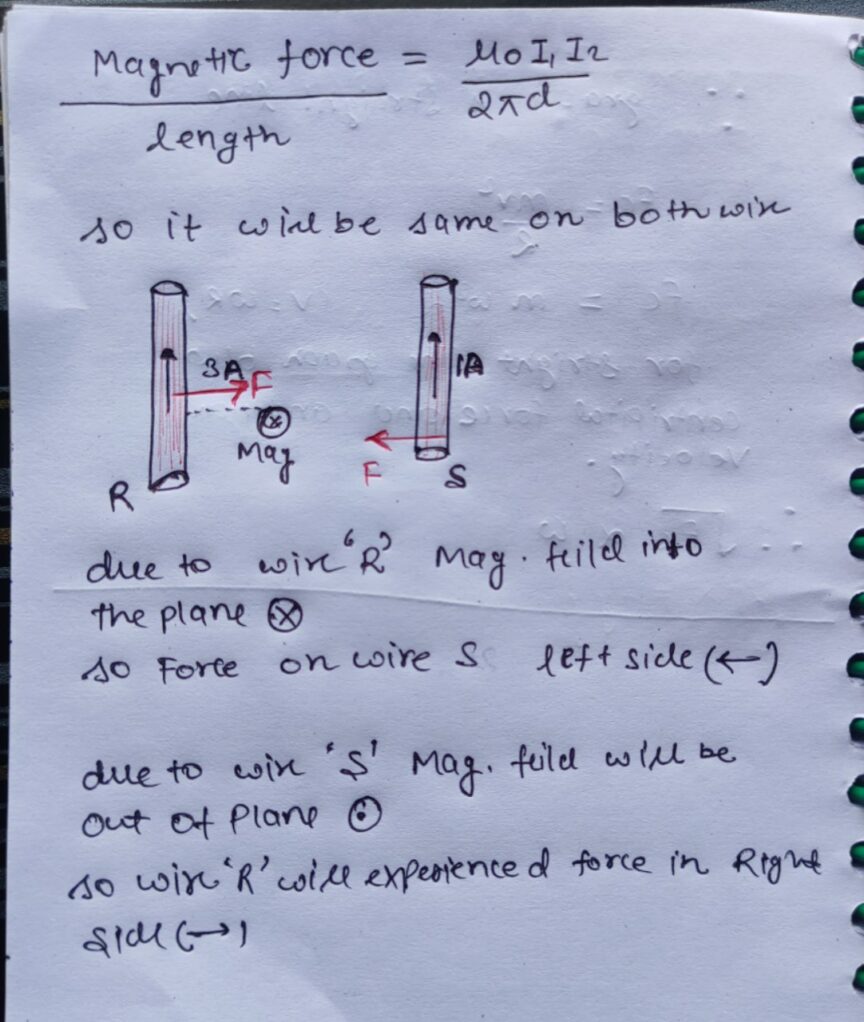 Magnetic force = μ0 I1 I2
length 2πd
so it will be same on both wire
3A F
1A
Mag
F S
R
due to wire 'R' Mag. feild into
the plane ⊗
so Force on wire S left side (←)
due to wire 'S' Mag. feild will be
out of Plane ⊙
so wire 'R' will experienced force in Right
side (→)